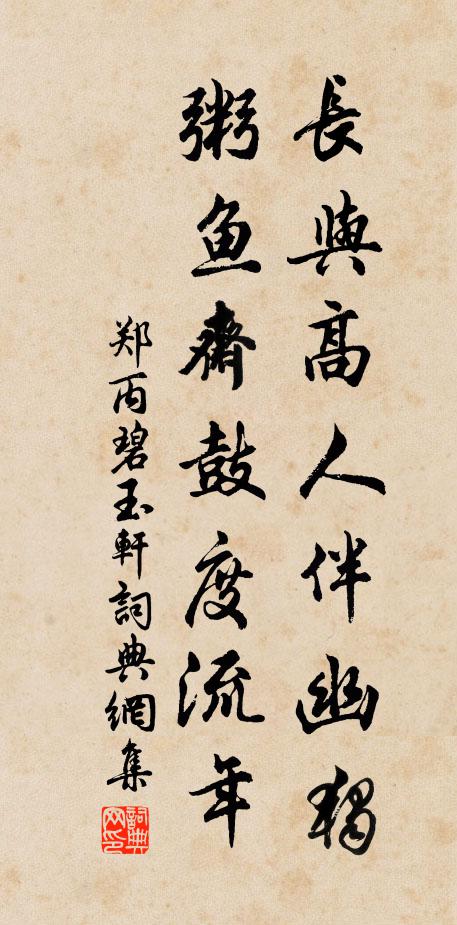 長與高人伴幽獨
粥魚齋鼓度流年
郑丙碧玉軒詞典網集
詞典網印